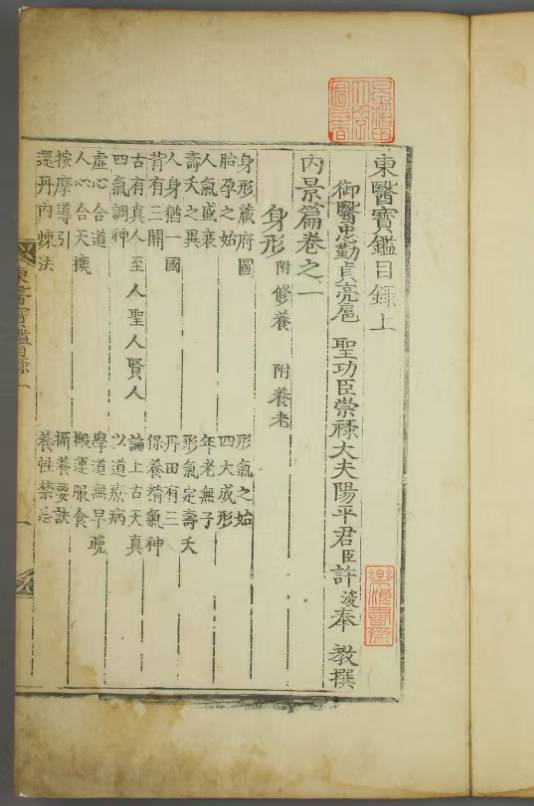 東醫寶鑑目錄上
御醫忠勤貞亮扈 聖功臣崇祿大夫陽平君臣許浚奉 教撰
內景篇卷之一
身形 附修養 附養老
身形藏府圖 形氣之始
胎孕之始 四大成形
人氣盛衰 年老無子
壽夭之異 形氣定壽夭
人身猶一國 丹田有三
背有三關 保養精氣神
古有真人至人聖人賢人 論上古天真
四氣調神 以道療病
虛心合道 學道無早晚
人心合天機 搬運服食
按摩導引 攝養要訣
還丹內煉法 養性禁忌
東醫寶鑑目錄 一